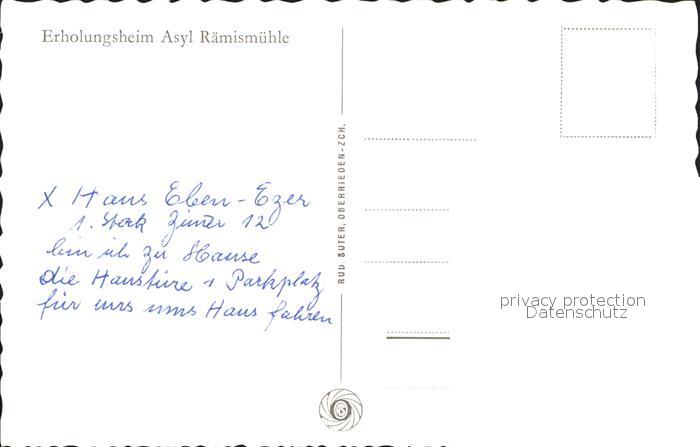 Erholungsheim Asyl Rämismühle
X Haus Eben-Ezer
1. Stock Zimer 12
bin ich zu Hause
die Haustüre + Parkplatz
für uns ums Haus fahren
RUD. SUTER, OBERRIEDEN-ZCH.
privacy protection
Datenschutz